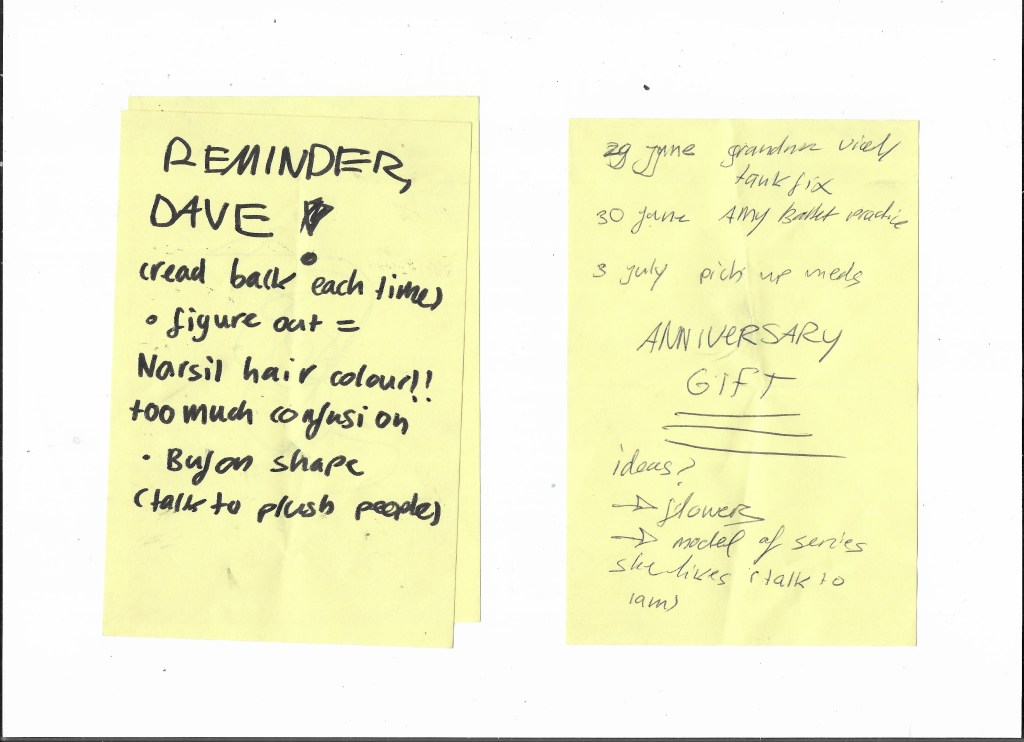 REMINDER,
DAVE !
(read back each time)
• figure out =
Narsil hair colour!!
too much confusion
• Bufon shape
(talk to plush people)
29 june grandma
tank fix
30 june AMy Ballet practice
3 july pick up meds
ANNIVERSARY
GIFT
ideas?
→ flowers
→ model of series
she likes (talk to
iam)